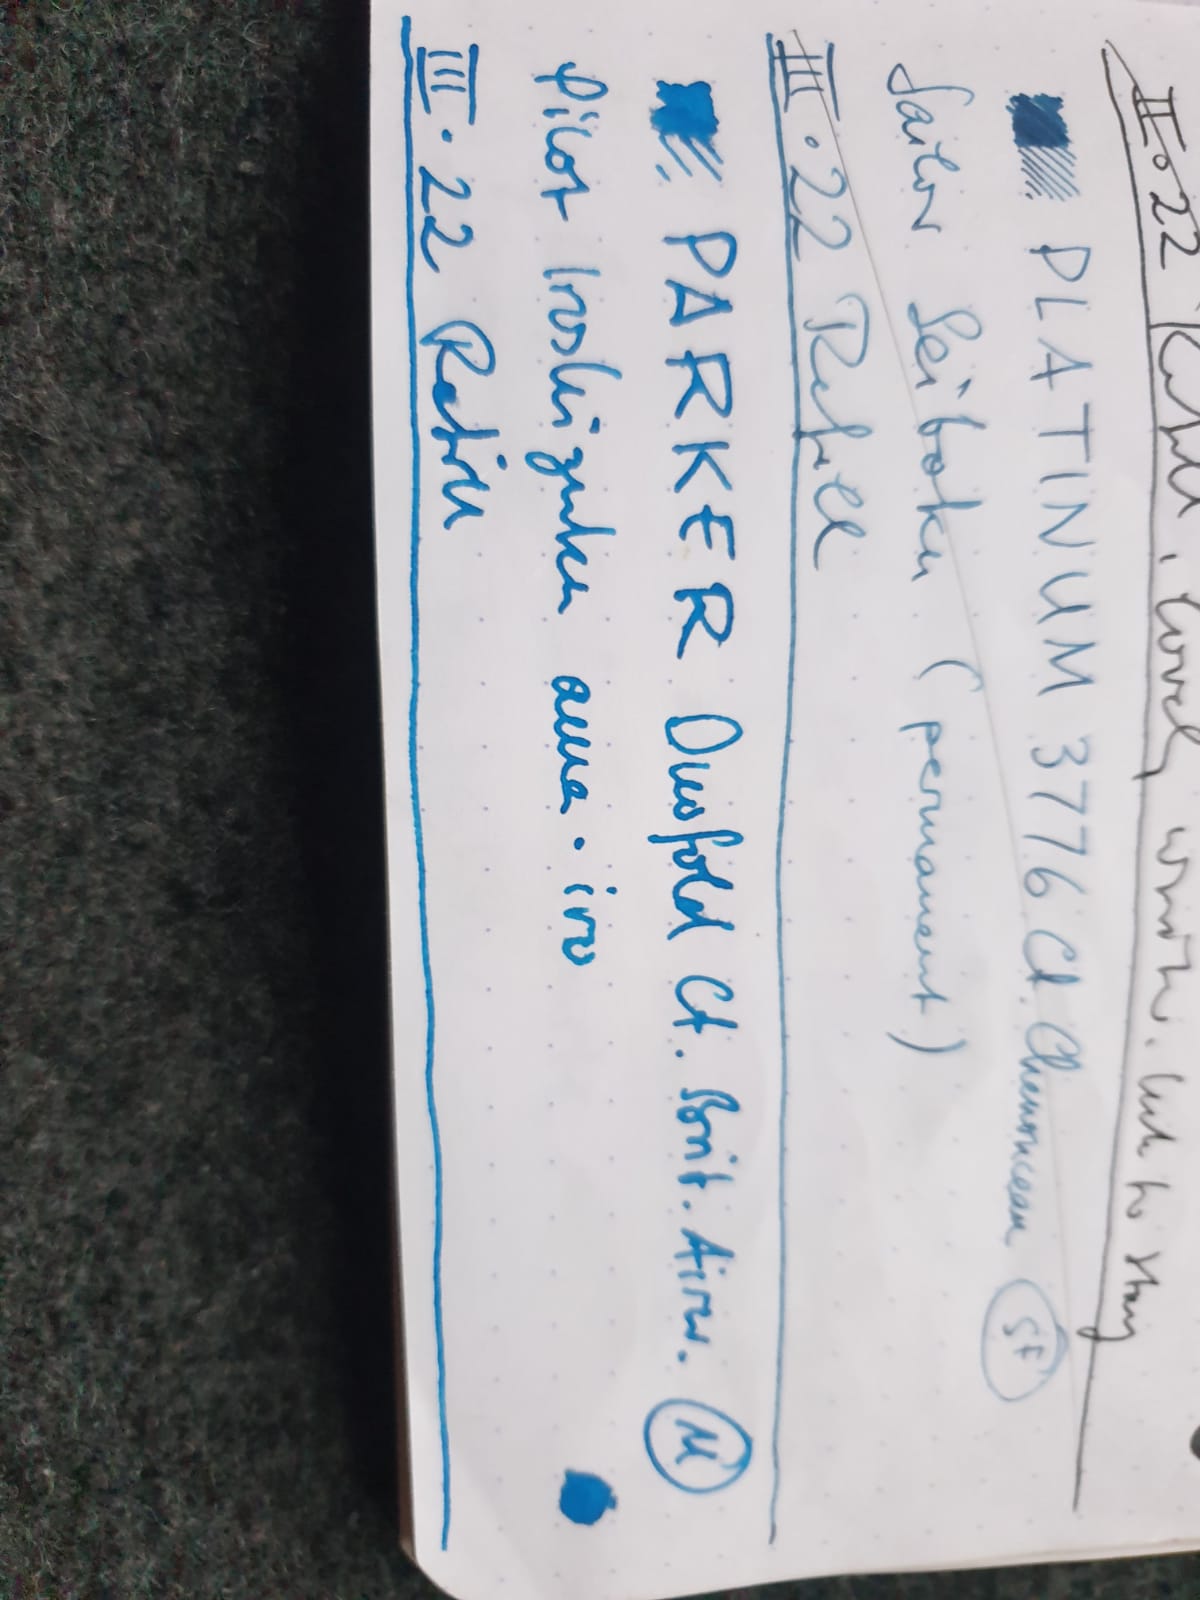 II. 22 Refill, lovely writer. Inch to stay
PLATINUM 3776 Ct. Chenonceau SF
Sailor Seiboku (permanent)
III. 22 Refill
PARKER Duofold Ct. Brit. Airw. M
Pilot Iroshizuku ama・iro
III. 22 Refill